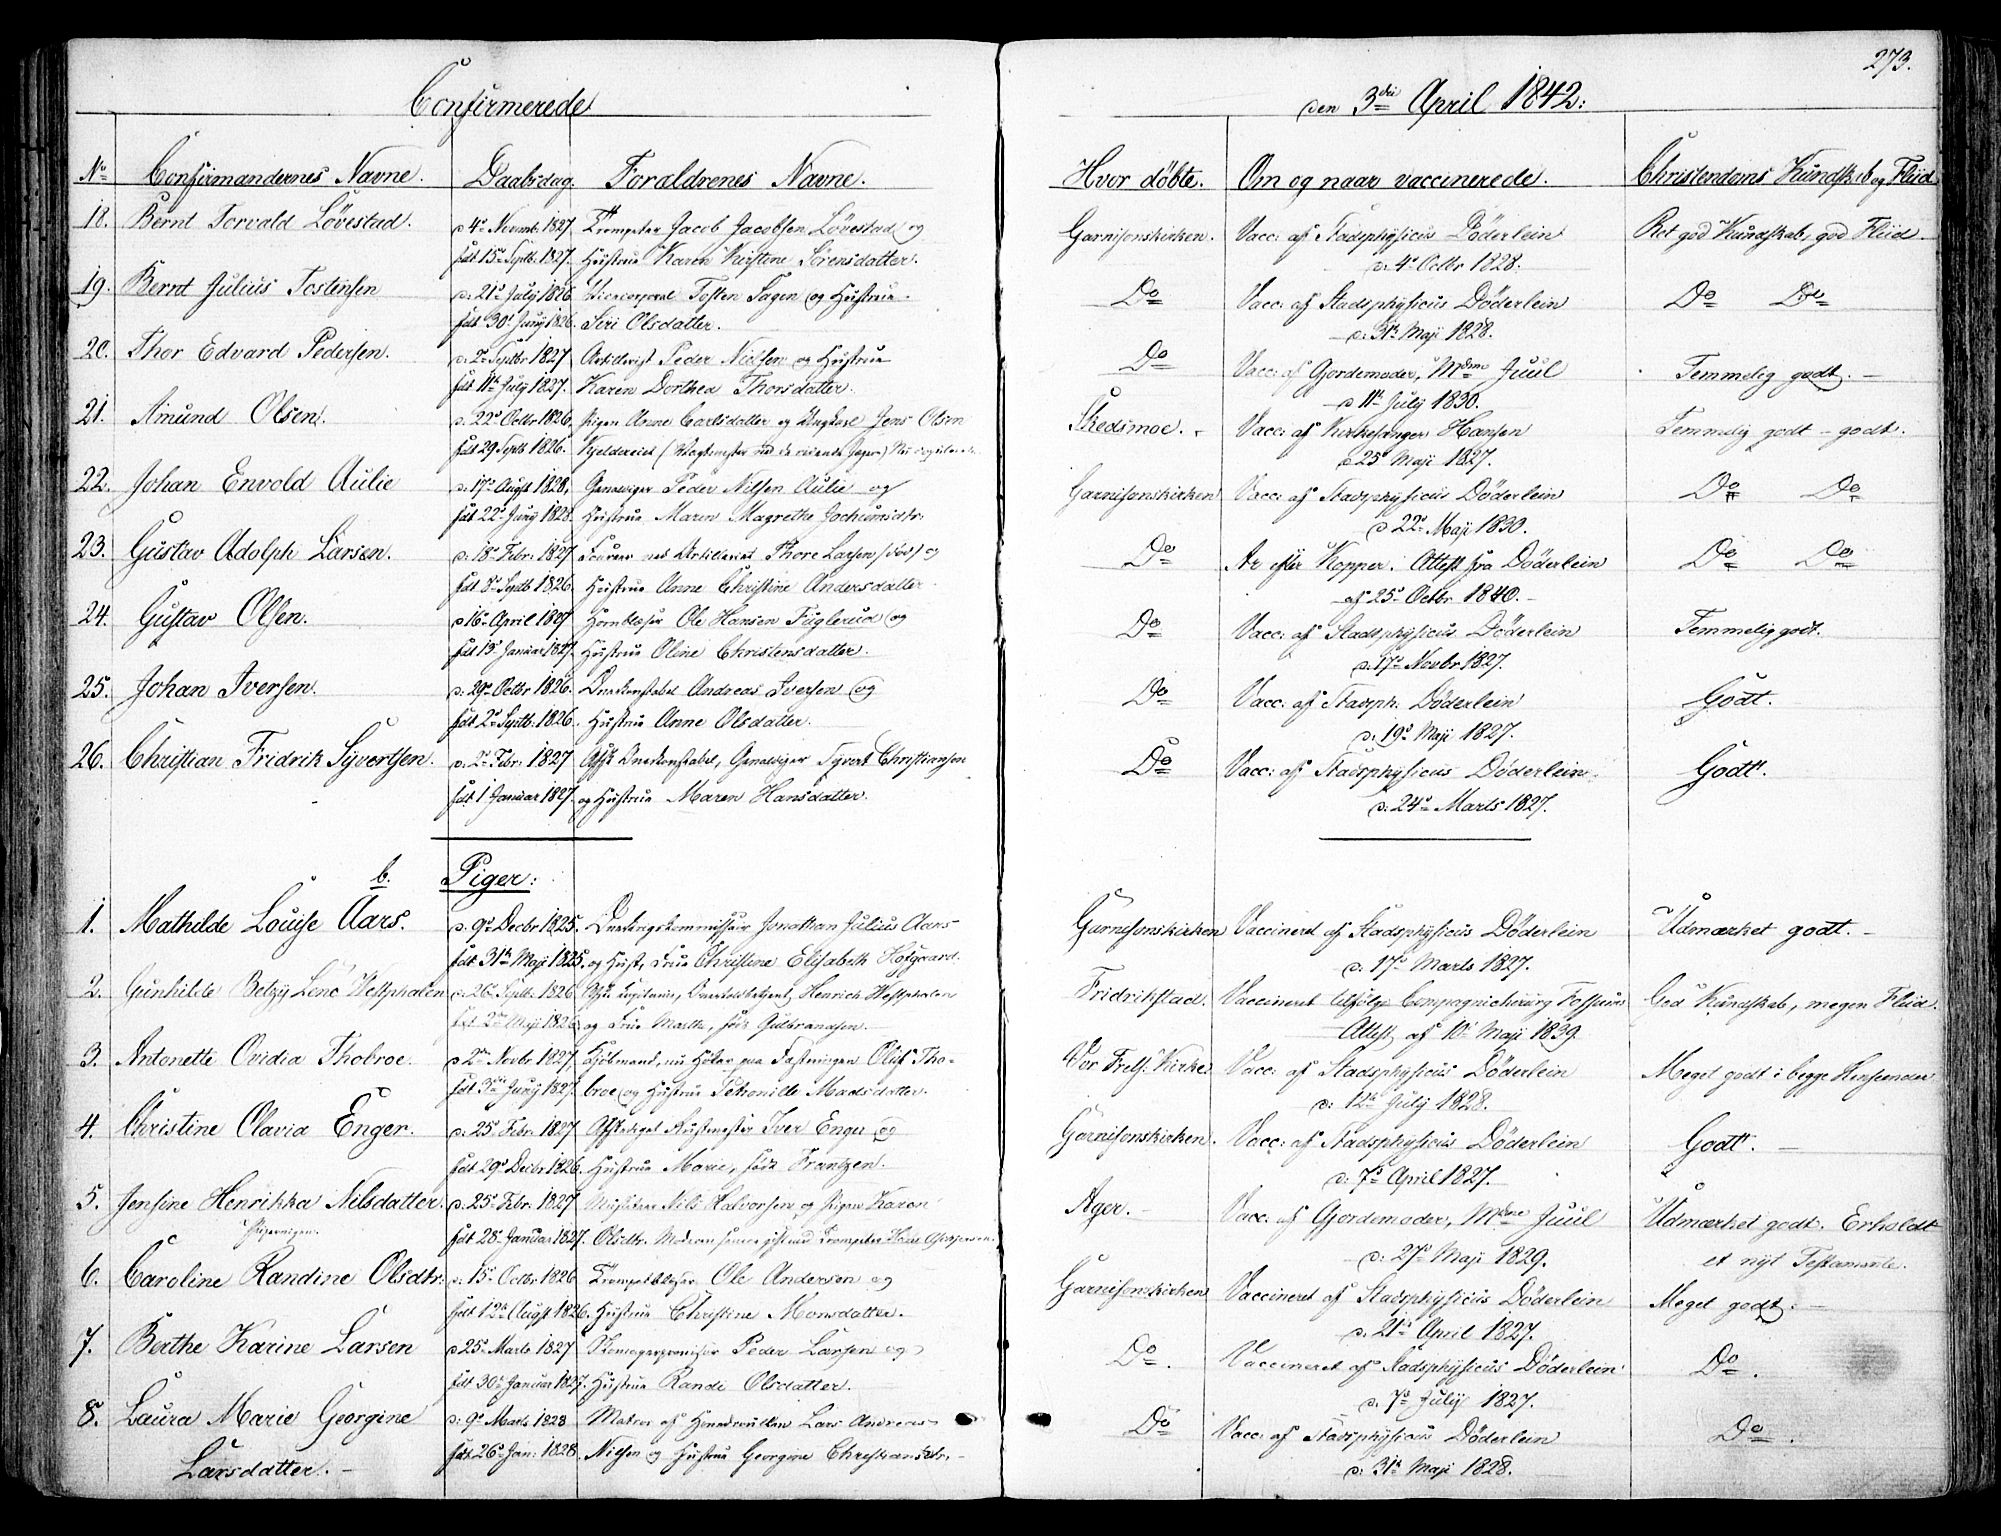 273.
Confirmerede
den 3die April 1842:
No Confirmandernes Navne. Daabsdag. Forældrenes Navne. Hvor døbte. Om og naar vaccinerede. Christendoms Kundskab og Fliid
18. Bernt Torvald Løvestad. d 4de Novemb. 1827. Trompeter Jacob Jacobsen Løvestad og Garnisonskirken. Vacc: af Stadsphysicus Döderlein Ret god Kundskab, god Fliid.
født 15de Septb. 1827. Hustrue Karen Kirstine Sörensdatter. d. 4de Octbr 1828.
19. Bernt Julius Tostensen d: 21de July 1826. Vicecorporal Tosten Sagen og Hustrue Do Vacc: af Stadsphysicus Döderlein Do Do
født 30te Juny 1826. Siri Olsdatter. d: 31te Maji 1828.
20. Thor Edvard Pedersen. d: 2den Septbr 1827 Artillerist Peder Nielsen og Hustrue Do Vacc: af Gjordemoder, Mdme Juul Temmelig godt.
født 11te July 1827. Karen Dorthea Thorsdatter. d 11te July 1830.
21. Amund Olsen. d: 22de Octbr 1826. Pigen Anne Carlsdatter og Ungkarl Jens Olsen Skedsmoe. Vacc: af Kirkesanger Hansen Temmelig godt - godt.
født 29 Septb 1826. d 25de Maji 1827.
22. Johan Envold Aulie d: 17de Augst 1828. Gevaldiger Peder Nilsen Aulie og Garnisonskirken Vacc: af Stadsphysicus Döderlein Do Do
født 22de Juny 1828. Hustrue Maren Magrethe Jochumsdtr. d 22de Maji 1830.
23. Gustav Adolph Larsen. d: 18de Febr: 1827 Fourer ved Artilleriet Thore Larsen (död) og Do Ar efter Kopper. Attest fra Döderlein Do Do
født 8de Septb 1826. Hustrue Anne Christine Andersdatter af 25de Octbr 1840.
24. Gustav Olsen. d 16de April 1827 Hornblæser Ole Hansen Fuglerud og Do Vacc: af Stadsphysicus Döderlein Temmelig godt.
født 13de Januar 1827. Hustrue Oline Christensdatter. d: 17de Novbr 1827.
25. Johan Iversen. d: 29de Octbr 1826. Underkonstabel Andreas Iversen og Do Vacc: af Stadsph. Döderlein Godt.
født 2den Septb: 1826. Hustrue Anne Olsdatter. d: 19de Maji 1827.
26. Christian Fridrik Syvertsen. d: 2den Febr: 1827 Afsk. Underkonstabel, Gevaldiger Syvert Christiansen Do Vacc: af Stadsphysicus Döderlein. Godt.
født 1 Januar 1827. og Hustrue Maren Hansdatter. d: 24de Marts 1827.
b. Piger:
1. Mathilde Louise Aars. d. 9de Decbr 1825. Jonathan Julius Aars Garnisonskirken Vaccineret af Stadsphysicus Döderlein Udmærket godt.
født 31te Maji 1825. og Hust, Frue Christine Elisabeth Hofgaard. d. 17de Marts 1827.
2. Gunhilde Betzy Lene Westphalen d: 26de Septb: 1826 Henrich Westphalen Fridrikstad. Vaccineret ifølge Compagniechirurg Fossums God Kundskab, megen Fliid.
født 2den Maji 1826 og Frue Marthe, født Gulbrandsen. Attest af 10de Maji 1839.
3. Antonette Ovidia Thobroe. d 2den Novbr 1827. Kjøbmand, nu Høker paa Fæstningen Oluf Tho- Vor Frels: Kirke Vacc: af Stadsphysicus Döderlein Meget godt i begge Henseender
født 3die Juny 1827. broe og Hustrue Petronille Madsdatter. d: 12te July 1828.
4. Christine Olavia Enger. d: 25de Febr: 1827 Afskediget Rustmester Iver Enger og Garnisonskirken. Vacc: af Stadsphysicus Döderlein Godt.
født 29de Decbr 1826. Hustrue Marie, født Frantzen. d: 7de April 1827.
5. Jensine Henrikka Nilsdatter. d: 25de Febr: 1827 Musketer Nils Halvorsen og Pigen Karen Ager. Vacc. af Gjordemoder, Mdme Juul Udmærket godt. Erholdt
født 28 Januar 1827. Olsdtr. Moderen senere gift med Trompeter d: 27de Maji 1829. et nyt Testamente.
6. Caroline Randine Olsdtr: d: 15de Octbr 1826 Trompetblæser Ole Andersen og Garnisonskirken Vaccineret af Stadsphysicus Döderlein Meget godt.
født 12te Augst 1826. Hustrue Christine Monsdatter. d. 21de April 1827.
7. Berthe Karine Larsen d 25de Marts 1827 Skomagerprovisor Peder Larsen og Do. Vaccineret af Stadsphysicus Döderlein Do.
født 30te Januar 1827. Hustrue Randi Olsdatter. d. 7de July 1827.
8. Laura Marie Georgine d: 9de Marts 1828 Matros af Lars Andreas Do Vacc: af Stadsphysicus Döderlein Do.
Larsdatter. født 26de Jan: 1828. Nielsen og Hustrue Georgine Christiansdtr. d: 31te Maji 1828.